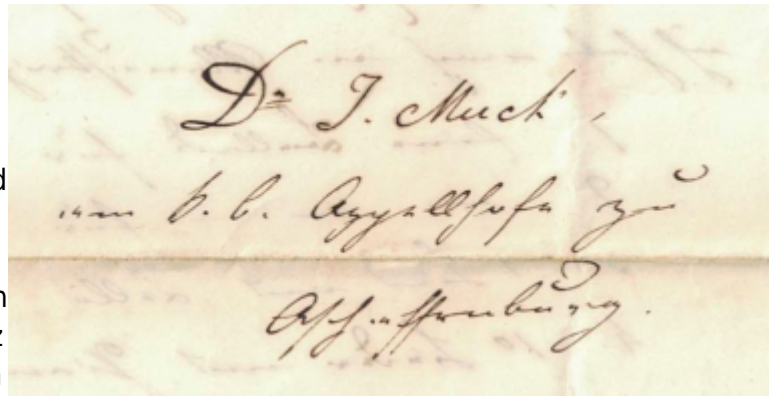 Dr J. Muck,
am k. b. Appellhofe zu
Aschaffenburg.
d
n
z